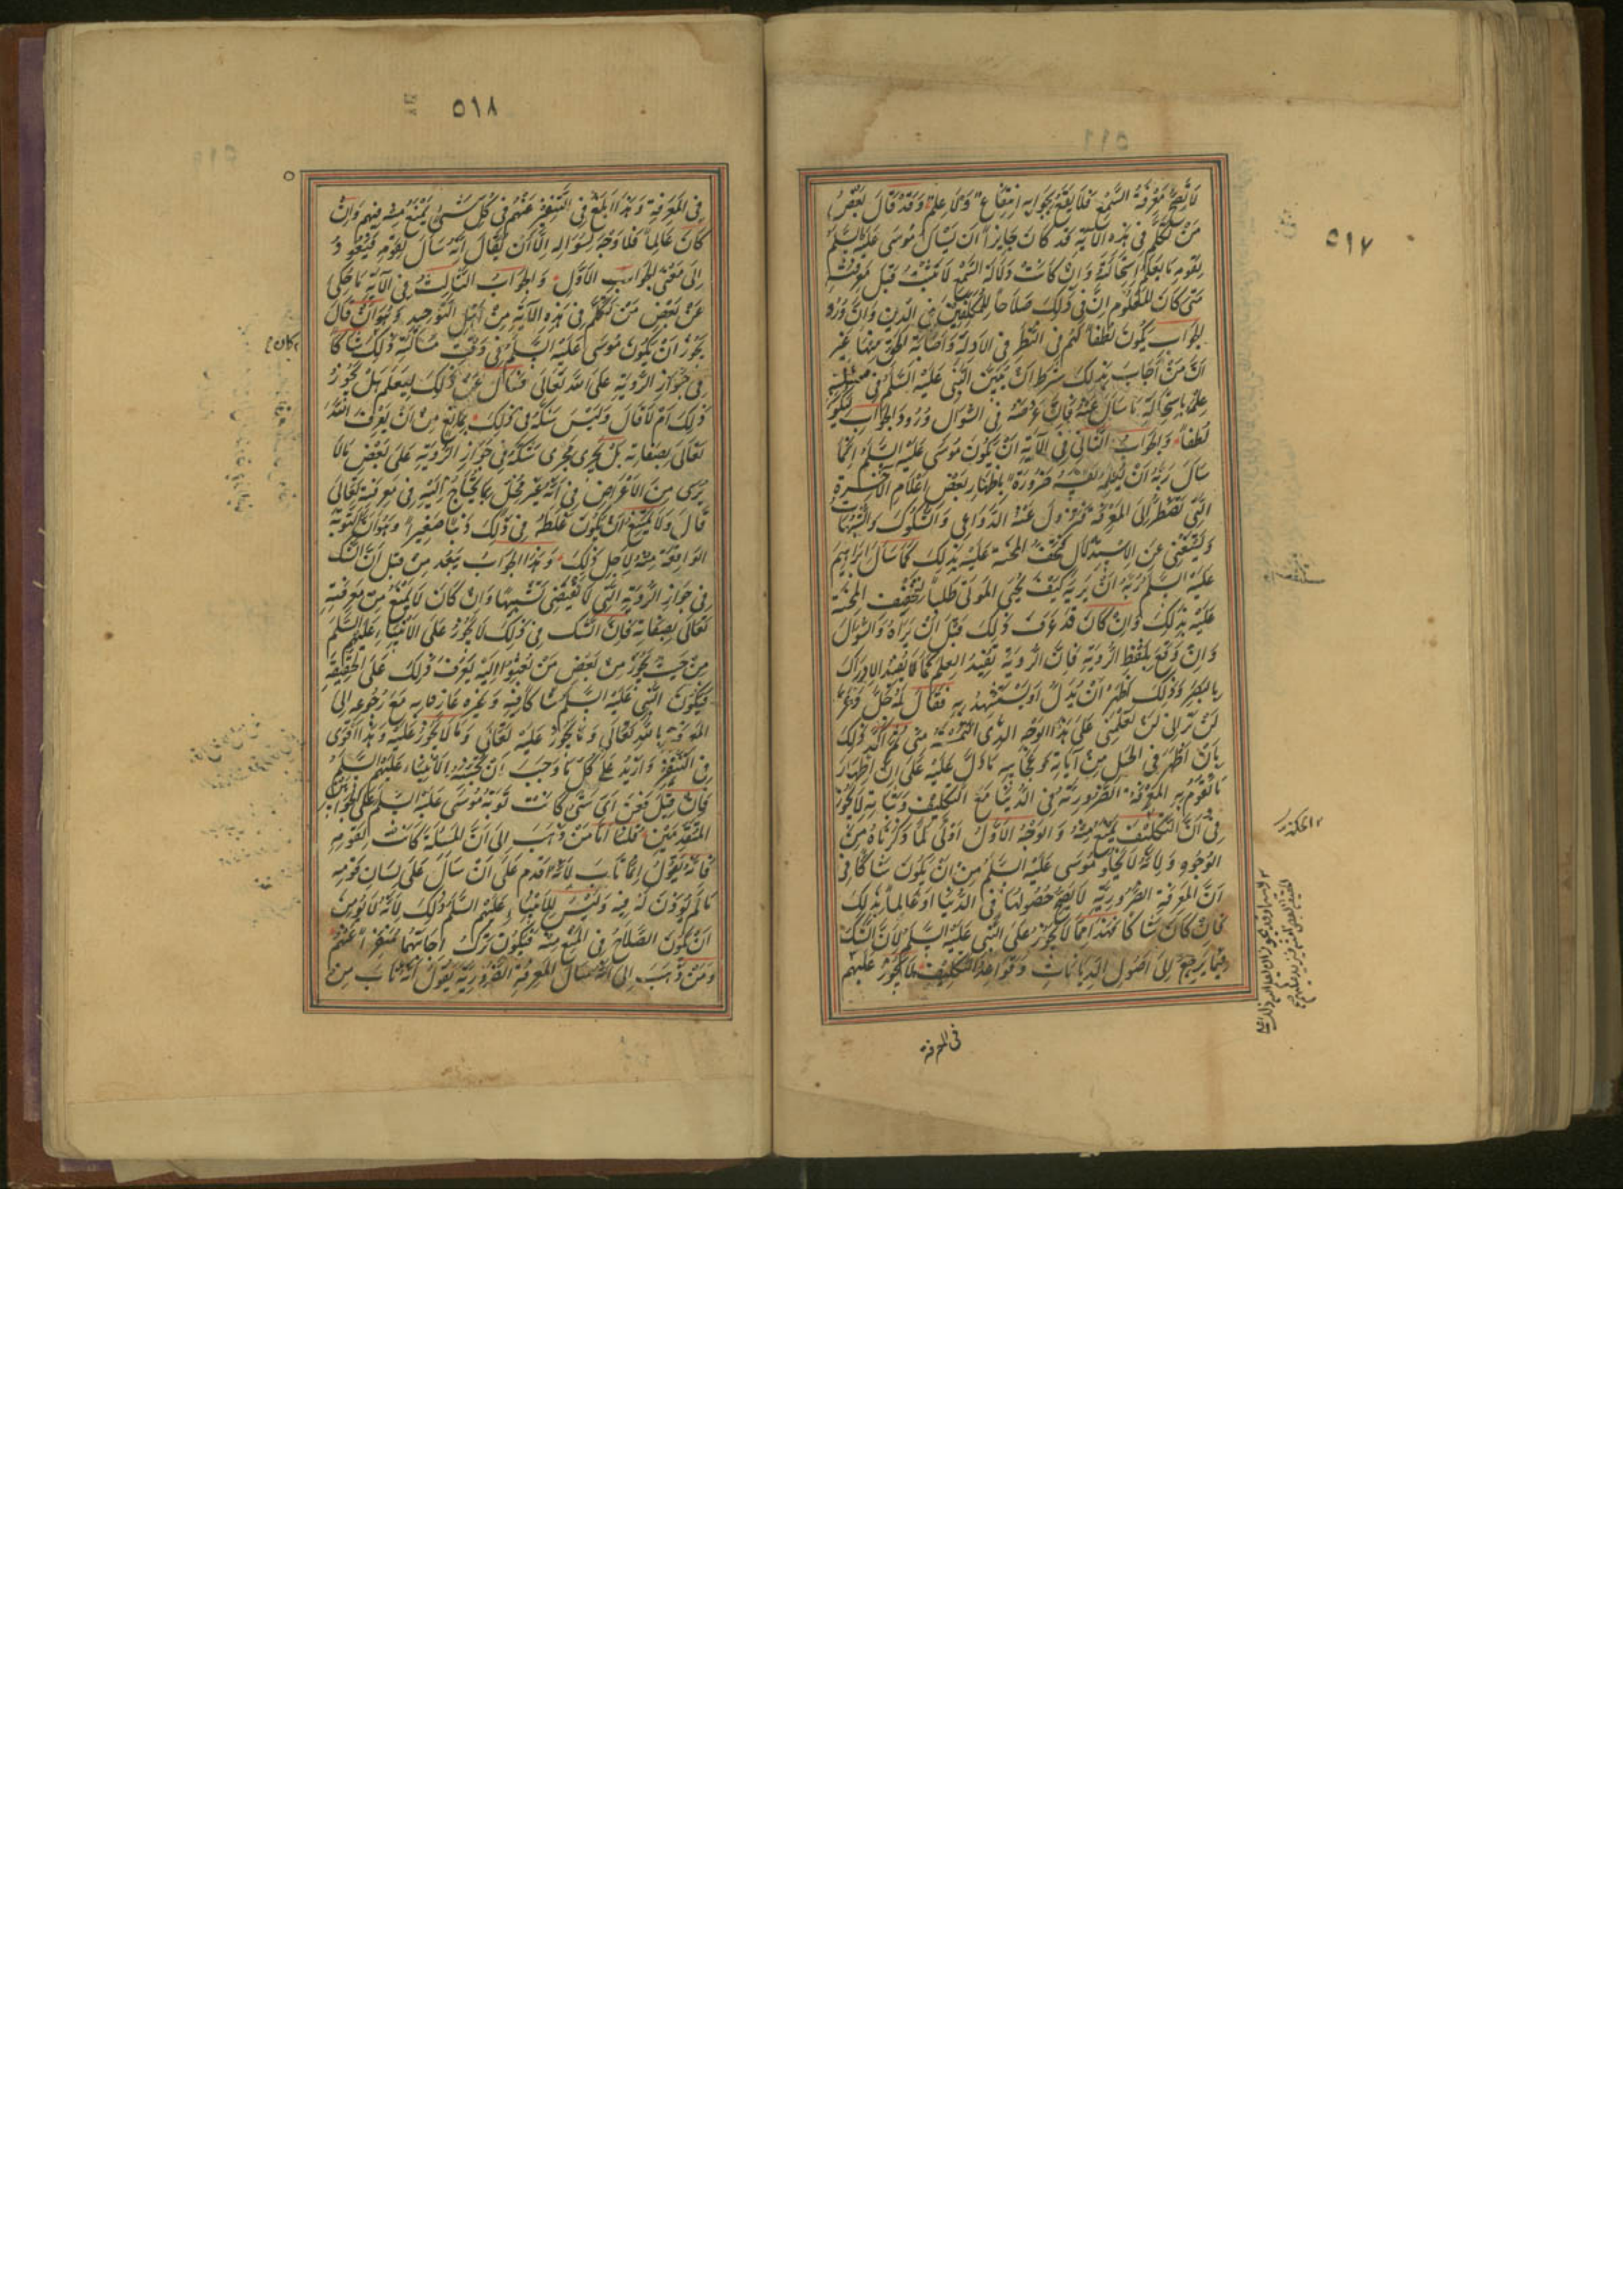 ٥١٧
لَا يَصِحُّ مَعْرِفَةُ السَّمْعِ فَلَا يَقَعُ بِجَوَابِهِ انْتِفَاعٌ وَلَا عِلْمٌ وَقَدْ قَالَ بَعْضُ
مَنْ تَكَلَّمَ فِى هٰذِهِ الآيَةِ قَدْ كَانَ جَايِزًا أَنْ يَسْأَلَ مُوسَى عَلَيْهِ السَّلَمُ
لِقَوْمِهِ مَا يَعْلَمُ اسْتِحَالَتَهُ وَإِنْ كَانَتْ دَلَالَةُ السَّمْعِ لَا تَثْبُتُ قَبْلَ مَعْرِفَتِهِ
مَتَى كَانَ المَعْلُومُ إِنَّ فِى ذَلِكَ صَلَاحًا لِلْمُكَلَّفِينَ فِى الدِّينِ وَإِنَّ وُرُودَ
الجَوَابِ يَكُونُ لُطْفًا لَهُمْ فِى النَّظَرِ فِى الأَدِلَّةِ وَإِصَابَةِ الحَقِّ مِنْهَا غَيْرَ
أَنَّ مَنْ أَجَابَ بِذَلِكَ شَرَطَ أَنْ يُبَيِّنَ النَّبِىُّ عَلَيْهِ السَّلَمُ فِى مَسْئَلَتِهِ
عِلْمَهُ بِاسْتِحَالَةِ مَا سَأَلَ عَنْهُ فَإِنَّ غَرَضَهُ فِى السُّؤَالِ وُرُودُ الجَوَابِ لِيَكُونَ
لُطْفًا وَالجَوَابُ الثَّانِى فِى الآيَةِ أَنْ يَكُونَ مُوسَى عَلَيْهِ السَّلَمُ إِنَّمَا
سَأَلَ رَبَّهُ أَنْ يُعْلِمَهُ نَفْسَهُ ضَرُورَةً بِإِظْهَارِ بَعْضِ أَعْلَامِ الآخِرَةِ
الَّتِى تَضْطَرُّ إِلَى المَعْرِفَةِ فَتَزُولَ عَنْهُ الدَّوَاعِى وَالشُّكُوكُ وَالشُّبُهَاتُ
وَيَسْتَغْنِىَ عَنِ الِاسْتِدْلَالِ فَتَخِفَّ المِحْنَةُ عَلَيْهِ بِذَلِكَ كَمَا سَأَلَ إِبْرَاهِيمُ
عَلَيْهِ السَّلَمُ رَبَّهُ أَنْ يُرِيَهُ كَيْفَ يُحْيِى المَوْتَى طَلَبًا لِتَخْفِيفِ المِحْنَةِ
عَلَيْهِ بِذَلِكَ وَإِنْ كَانَ قَدْ عَرَفَ ذَلِكَ قَبْلَ أَنْ يَرَاهُ وَالسُّؤَالُ
وَإِنْ وَقَعَ بِلَفْظِ الرُّؤْيَةِ فَإِنَّ الرُّؤْيَةَ تُفِيدُ العِلْمَ كَمَا تُفِيدُ الإِدْرَاكَ
بِالبَصَرِ وَذَلِكَ أَظْهَرُ أَنْ يُدَلَّ أَوْ يُسْتَشْهَدَ بِهِ فَقَالَ لَهُ جَلَّ وَعَزَّ
لَنْ تَرَانِى لَنْ تَعْلَمَنِى عَلَى هٰذَا الوَجْهِ الَّذِى الْتَمَسْتَهُ مِنِّى ثُمَّ أَكَّدَ ذَلِكَ
بِأَنْ أَظْهَرَ فِى الجَبَلِ مِنْ آيَاتِهِ وَعَجَائِبِهِ مَا دَلَّ عَلَيْهِ عَلَى أَنَّ إِظْهَارَ
مَا تَقُومُ بِهِ المَعْرِفَةُ الضَّرُورِيَّةُ فِى الدُّنْيَا مَعَ التَّكْلِيفِ وَبَيَانِهِ لَا يَجُوزُ
فَإِنَّ التَّكْلِيفَ يَمْنَعُ مِنْهُ وَالوَجْهُ الأَوَّلُ أَوْلَى لِمَا ذَكَرْنَاهُ مِنَ
الوُجُوهِ وَلِأَنَّهُ لَا يَخْلُو مُوسَى عَلَيْهِ السَّلَمُ مِنْ أَنْ يَكُونَ شَاكًّا فِى
أَنَّ المَعْرِفَةَ الضَّرُورِيَّةَ لَا يَصِحُّ حُصُولُهَا فِى الدُّنْيَا أَوْ عَالِمًا بِذَلِكَ
فَإِنْ كَانَ شَاكًّا فَهٰذَا مِمَّا لَا يَجُوزُ عَلَى النَّبِىِّ عَلَيْهِ السَّلَمُ لِأَنَّ الشَّكَّ
فِيمَا يَرْجِعُ إِلَى أُصُولِ الدِّيَانَاتِ وَقَوَاعِدِ التَّكْلِيفِ لَا يَجُوزُ عَلَيْهِمْ
الحكمة
فى المعرفة
٥١٨
فِى المَعْرِفَةِ وَهٰذَا أَبْلَغُ فِى التَّنْفِيرِ عَنْهُمْ فِى كُلِّ شَىْءٍ يُمْنَعُ مِنْهُ فِيهِمْ وَإِنْ
كَانَ عَالِمًا فَلَا وَجْهَ لِسُؤَالِهِ إِلَّا أَنْ يُقَالَ إِنَّهُ سَأَلَ لِقَوْمِهِ فَيَعُودُ
إِلَى مَعْنَى الجَوَابِ الأَوَّلِ وَالجَوَابُ الثَّالِثُ فِى الآيَةِ مَا حُكِىَ
عَنْ بَعْضِ مَنْ تَكَلَّمَ فِى هٰذِهِ الآيَةِ مِنْ أَهْلِ التَّوْحِيدِ وَهُوَ أَنْ قَالَ
يَجُوزُ أَنْ يَكُونَ مُوسَى عَلَيْهِ السَّلَمُ فِى وَقْتِ مَسْأَلَتِهِ ذَلِكَ شَاكًّا
كان
فِى جَوَازِ الرُّؤْيَةِ عَلَى اللهِ تَعَالَى فَسَأَلَ عَنْ ذَلِكَ لِيَعْلَمَ هَلْ يَجُوزُ
ذَلِكَ أَمْ لَا قَالَ وَلَيْسَ شَكُّهُ فِى ذَلِكَ بِمَانِعٍ مِنْ أَنْ يَعْرِفَ اللهَ
تَعَالَى بِصِفَاتِهِ بَلْ يَجْرِى مَجْرَى شَكِّهِ فِى جَوَازِ الرُّؤْيَةِ عَلَى بَعْضِ مَا لَا
يُرَى مِنَ الأَعْرَاضِ فِى أَنَّهُ غَيْرُ مُخِلٍّ بِمَا يَحْتَاجُ إِلَيْهِ فِى مَعْرِفَتِهِ تَعَالَى
قَالَ وَلَا يَمْتَنِعُ أَنْ يَكُونَ غَلَطُهُ فِى ذَلِكَ ذَنْبًا صَغِيرًا وَهُوَ أَنَّ التَّوْبَةَ
الوَاقِعَةَ مِنْهُ لِأَجْلِ ذَلِكَ وَهٰذَا الجَوَابُ يَبْعُدُ مِنْ قِبَلِ أَنَّ الشَّكَّ
فِى جَوَازِ الرُّؤْيَةِ الَّتِى لَا تَقْتَضِى تَشْبِيهًا وَإِنْ كَانَ لَا يَمْنَعُ مِنْ مَعْرِفَتِهِ
تَعَالَى بِصِفَاتِهِ فَإِنَّ الشَّكَّ فِى ذَلِكَ لَا يَجُوزُ عَلَى الأَنْبِيَاءِ عَلَيْهِمُ السَّلَمُ
مِنْ حَيْثُ يَجُوزُ مِنْ بَعْضِ مَنْ بُعِثُوا إِلَيْهِ يَعْرِفُ ذَلِكَ عَلَى الحَقِيقَةِ
فَيَكُونُ النَّبِىُّ عَلَيْهِ السَّلَمُ شَاكًّا فِيهِ وَغَيْرُهُ عَارِفًا بِهِ مَعَ رُجُوعِهِ إِلَى
المَعْرِفَةِ بِاللهِ تَعَالَى وَمَا يَجُوزُ عَلَيْهِ تَعَالَى وَمَا لَا يَجُوزُ عَلَيْهِ وَهٰذَا أَقْوَى
فِى التَّنْفِيرِ وَأَزْيَدُ عَلَى كُلِّ مَا وَجَبَ أَنْ يُجَنَّبَهُ الأَنْبِيَاءُ عَلَيْهِمُ السَّلَمُ
فَإِنْ قِيلَ فَعَنْ أَىِّ شَىْءٍ كَانَتْ تَوْبَةُ مُوسَى عَلَيْهِ السَّلَمُ عَلَى الجَوَابَيْنِ
المُتَقَدِّمَيْنِ قُلْنَا أَمَّا مَنْ ذَهَبَ إِلَى أَنَّ المَسْأَلَةَ كَانَتْ لِقَوْمِهِ
فَإِنَّهُ يَقُولُ إِنَّمَا تَابَ لِأَنَّهُ أَقْدَمَ عَلَى أَنْ سَأَلَ عَلَى لِسَانِ قَوْمِهِ
مَا لَمْ يُؤْذَنْ لَهُ فِيهِ وَلَيْسَ لِلأَنْبِيَاءِ عَلَيْهِمُ السَّلَمُ ذَلِكَ لِأَنَّهُ لَا يُؤْمَنُ
أَنْ يَكُونَ الصَّلَاحُ فِى المَنْعِ مِنْهُ فَيَكُونُ تَرْكُ إِجَابَتِهِمْ مُنَفِّرًا عَنْهُمْ
وَمَنْ ذَهَبَ إِلَى أَنَّهُ سَأَلَ المَعْرِفَةَ الضَّرُورِيَّةَ يَقُولُ أَنَّهُ تَابَ مِنْ